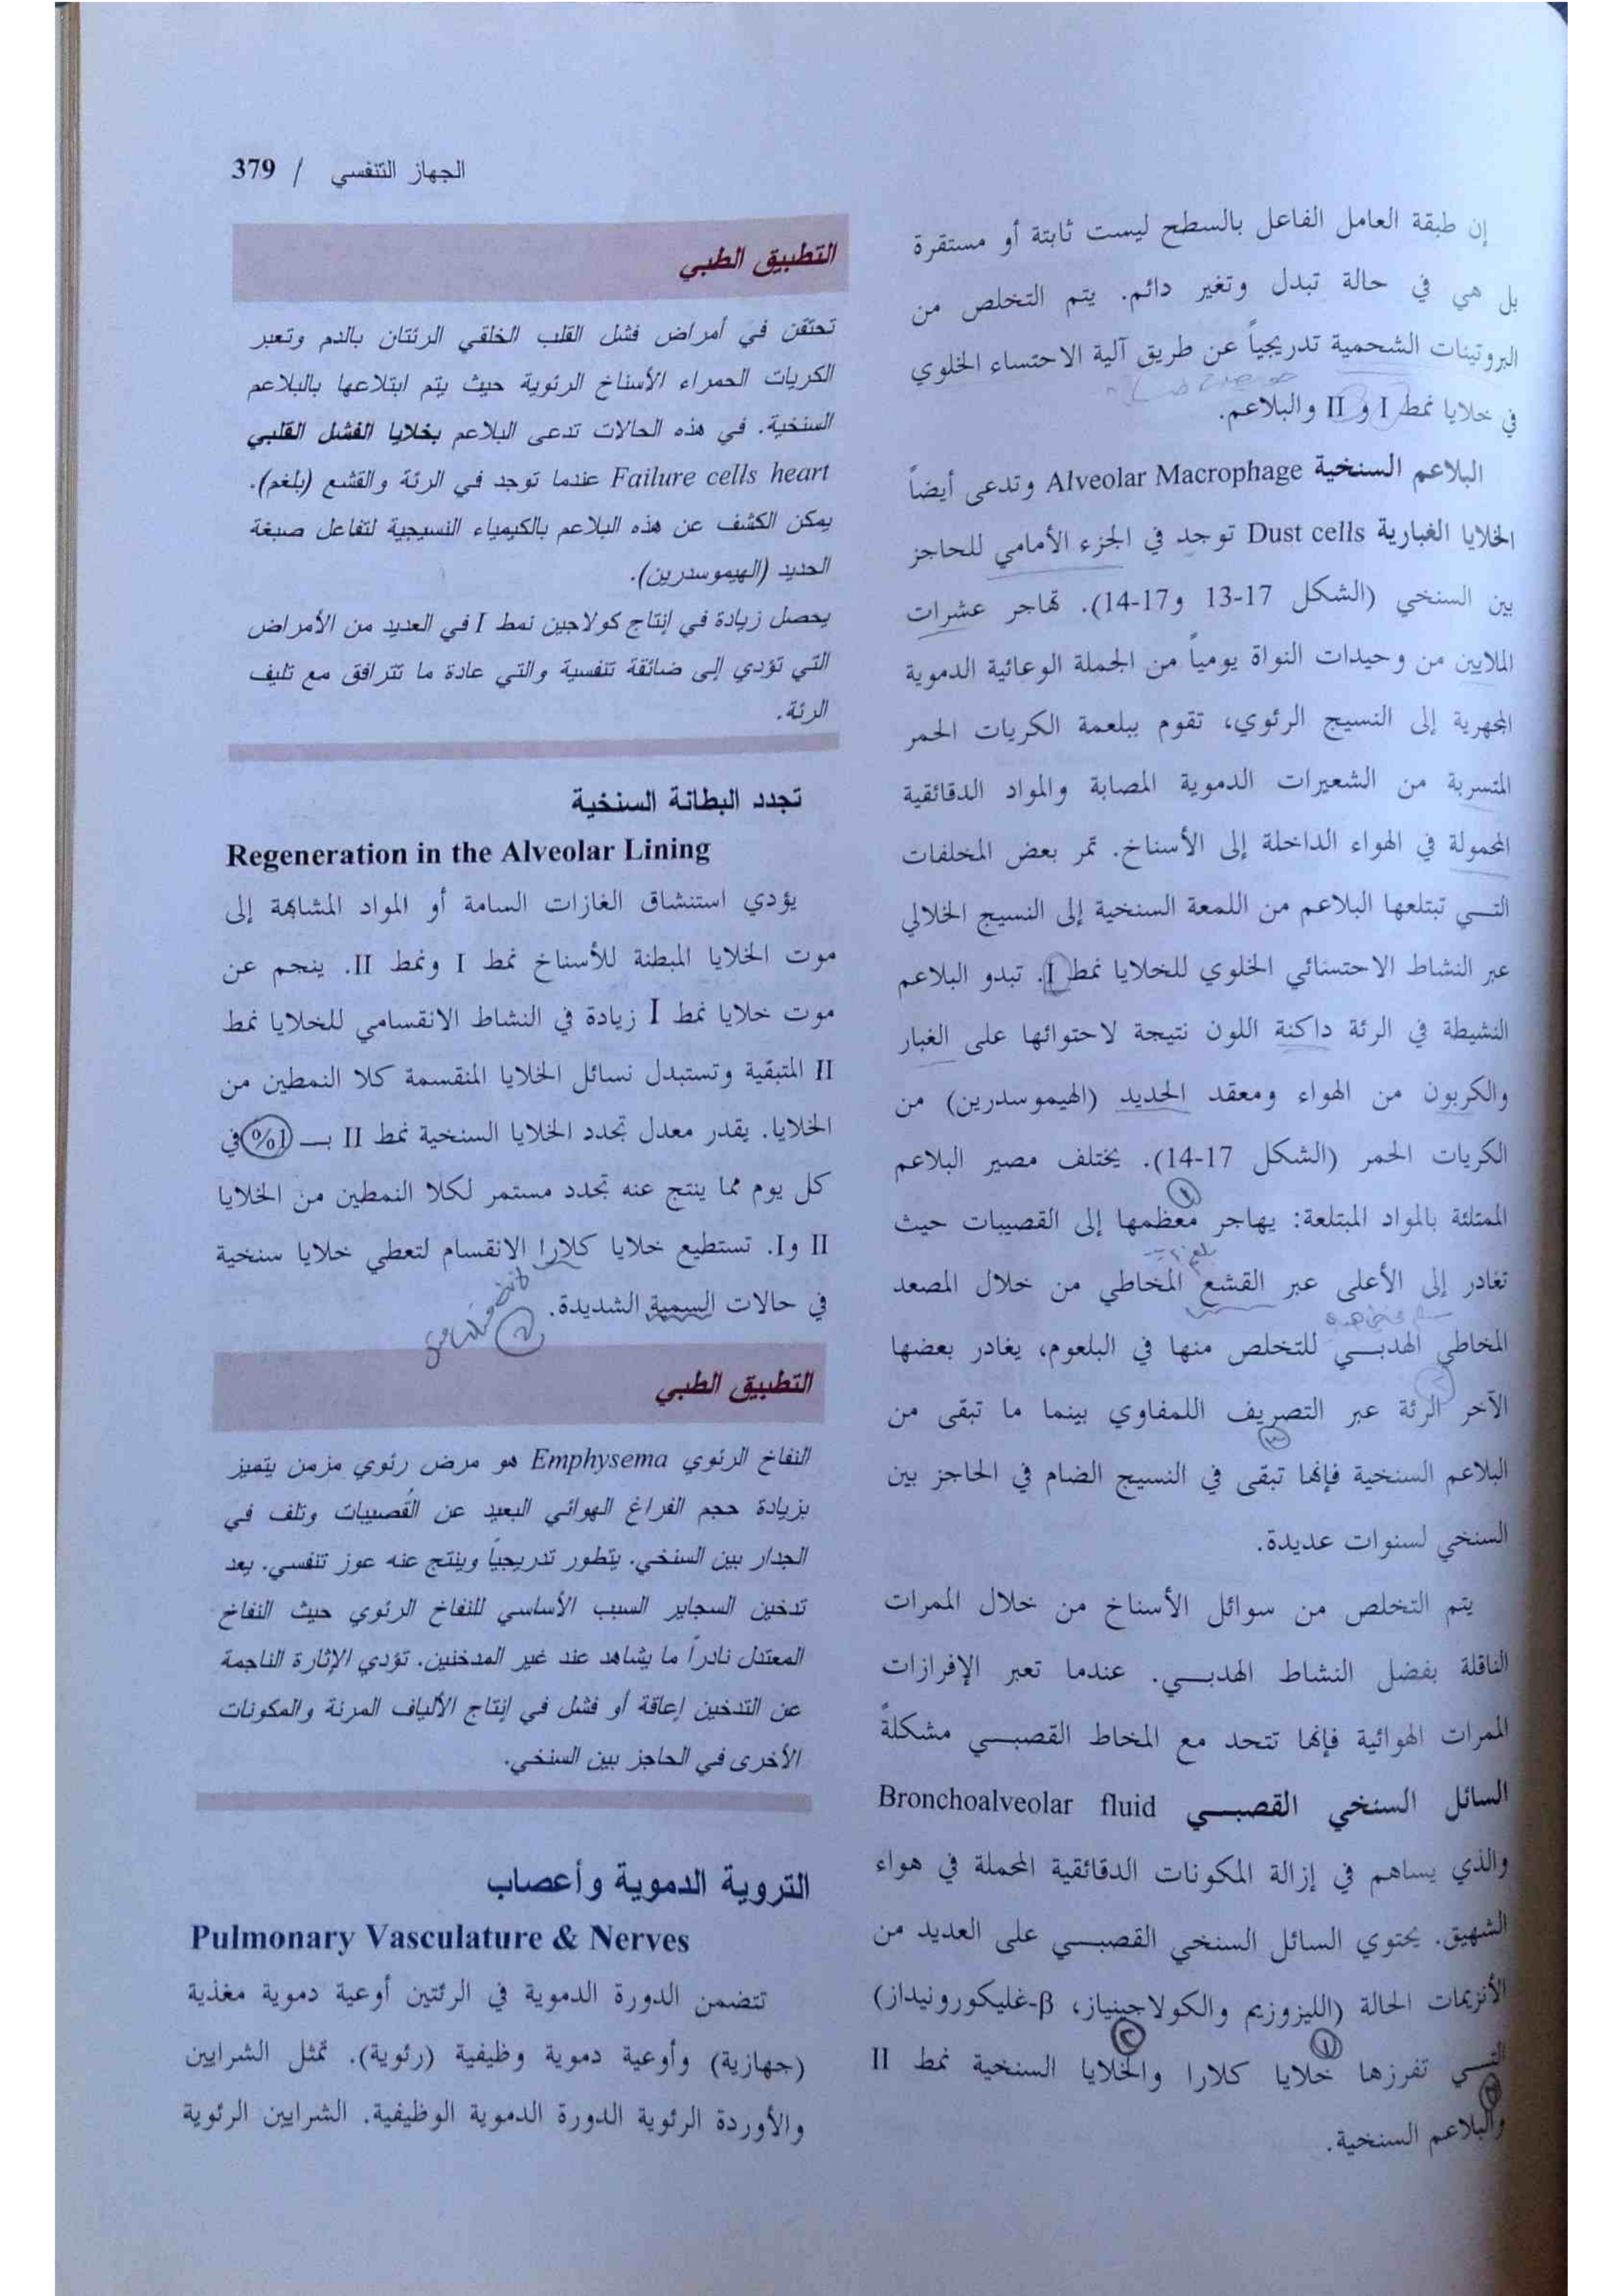 الجهاز التنفسي / 379
إن طبقة العامل الفاعل بالسطح ليست ثابتة أو مستقرة
بل هي في حالة تبدل وتغير دائم. يتم التخلص من
البروتينات الشحمية تدريجياً عن طريق آلية الاحتساء الخلوي
في خلايا نمط I و II والبلاعم.
البلاعم السنخية Alveolar Macrophage وتدعى أيضاً
الخلايا الغبارية Dust cells توجد في الجزء الأمامي للحاجز
بين السنخي (الشكل 17-13 و17-14). تهاجر عشرات
الملايين من وحيدات النواة يومياً من الجملة الوعائية الدموية
المجهرية إلى النسيج الرئوي، تقوم ببلعمة الكريات الحمر
المتسربة من الشعيرات الدموية المصابة والمواد الدقائقية
المحمولة في الهواء الداخلة إلى الأسناخ. تمر بعض المخلفات
التـي تبتلعها البلاعم من اللمعة السنخية إلى النسيج الخلالي
عبر النشاط الاحتسائي الخلوي للخلايا نمط I. تبدو البلاعم
النشيطة في الرئة داكنة اللون نتيجة لاحتوائها على الغبار
والكربون من الهواء ومعقد الحديد (الهيموسدرين) من
الكريات الحمر (الشكل 17-14). يختلف مصير البلاعم
الممتلئة بالمواد المبتلعة: يهاجر معظمها إلى القصيبات حيث
تغادر إلى الأعلى عبر القشع المخاطي من خلال المصعد
المخاطي الهدبـي للتخلص منها في البلعوم، يغادر بعضها
الآخر الرئة عبر التصريف اللمفاوي بينما ما تبقى من
البلاعم السنخية فإنها تبقى في النسيج الضام في الحاجز بين
السنخي لسنوات عديدة.
يتم التخلص من سوائل الأسناخ من خلال الممرات
الناقلة بفضل النشاط الهدبـي. عندما تعبر الإفرازات
الممرات الهوائية فإنها تتحد مع المخاط القصبـي مشكلةً
السائل السنخي القصبـي Bronchoalveolar fluid
والذي يساهم في إزالة المكونات الدقائقية المحملة في هواء
الشهيق. يحتوي السائل السنخي القصبـي على العديد من
الأنزيمات الحالة (الليزوزيم والكولاجيناز، β-غليكورونيداز)
التـي تفرزها خلايا كلارا والخلايا السنخية نمط II
والبلاعم السنخية.
التطبيق الطبي
تحتقن في أمراض فشل القلب الخلقي الرئتان بالدم وتعبر
الكريات الحمراء الأسناخ الرئوية حيث يتم ابتلاعها بالبلاعم
السنخية. في هذه الحالات تدعى البلاعم بخلايا الفشل القلبي
Failure cells heart عندما توجد في الرئة والقشع (بلغم).
يمكن الكشف عن هذه البلاعم بالكيمياء النسيجية لتفاعل صبغة
الحديد (الهيموسدرين).
يحصل زيادة في إنتاج كولاجين نمط I في العديد من الأمراض
التي تؤدي إلى ضائقة تنفسية والتي عادة ما تترافق مع تليف
الرئة.
تجدد البطانة السنخية
Regeneration in the Alveolar Lining
يؤدي استنشاق الغازات السامة أو المواد المشابهة إلى
موت الخلايا المبطنة للأسناخ نمط I ونمط II. ينجم عن
موت خلايا نمط I زيادة في النشاط الانقسامي للخلايا نمط
II المتبقية وتستبدل نسائل الخلايا المنقسمة كلا النمطين من
الخلايا. يقدر معدل تجدد الخلايا السنخية نمط II بـ 1% في
كل يوم مما ينتج عنه تجدد مستمر لكلا النمطين من الخلايا
II وI. تستطيع خلايا كلارا الانقسام لتعطي خلايا سنخية
في حالات السمية الشديدة.
التطبيق الطبي
النفاخ الرئوي Emphysema هو مرض رئوي مزمن يتميز
بزيادة حجم الفراغ الهوائي البعيد عن القُصيبات وتلف في
الجدار بين السنخي. يتطور تدريجياً وينتج عنه عوز تنفسي. يعد
تدخين السجاير السبب الأساسي للنفاخ الرئوي حيث النفاخ
المعتدل نادراً ما يشاهد عند غير المدخنين. تؤدي الإثارة الناجمة
عن التدخين إعاقة أو فشل في إنتاج الألياف المرنة والمكونات
الأخرى في الحاجز بين السنخي.
التروية الدموية وأعصاب
Pulmonary Vasculature & Nerves
تتضمن الدورة الدموية في الرئتين أوعية دموية مغذية
(جهازية) وأوعية دموية وظيفية (رئوية). تمثل الشرايين
والأوردة الرئوية الدورة الدموية الوظيفية. الشرايين الرئوية